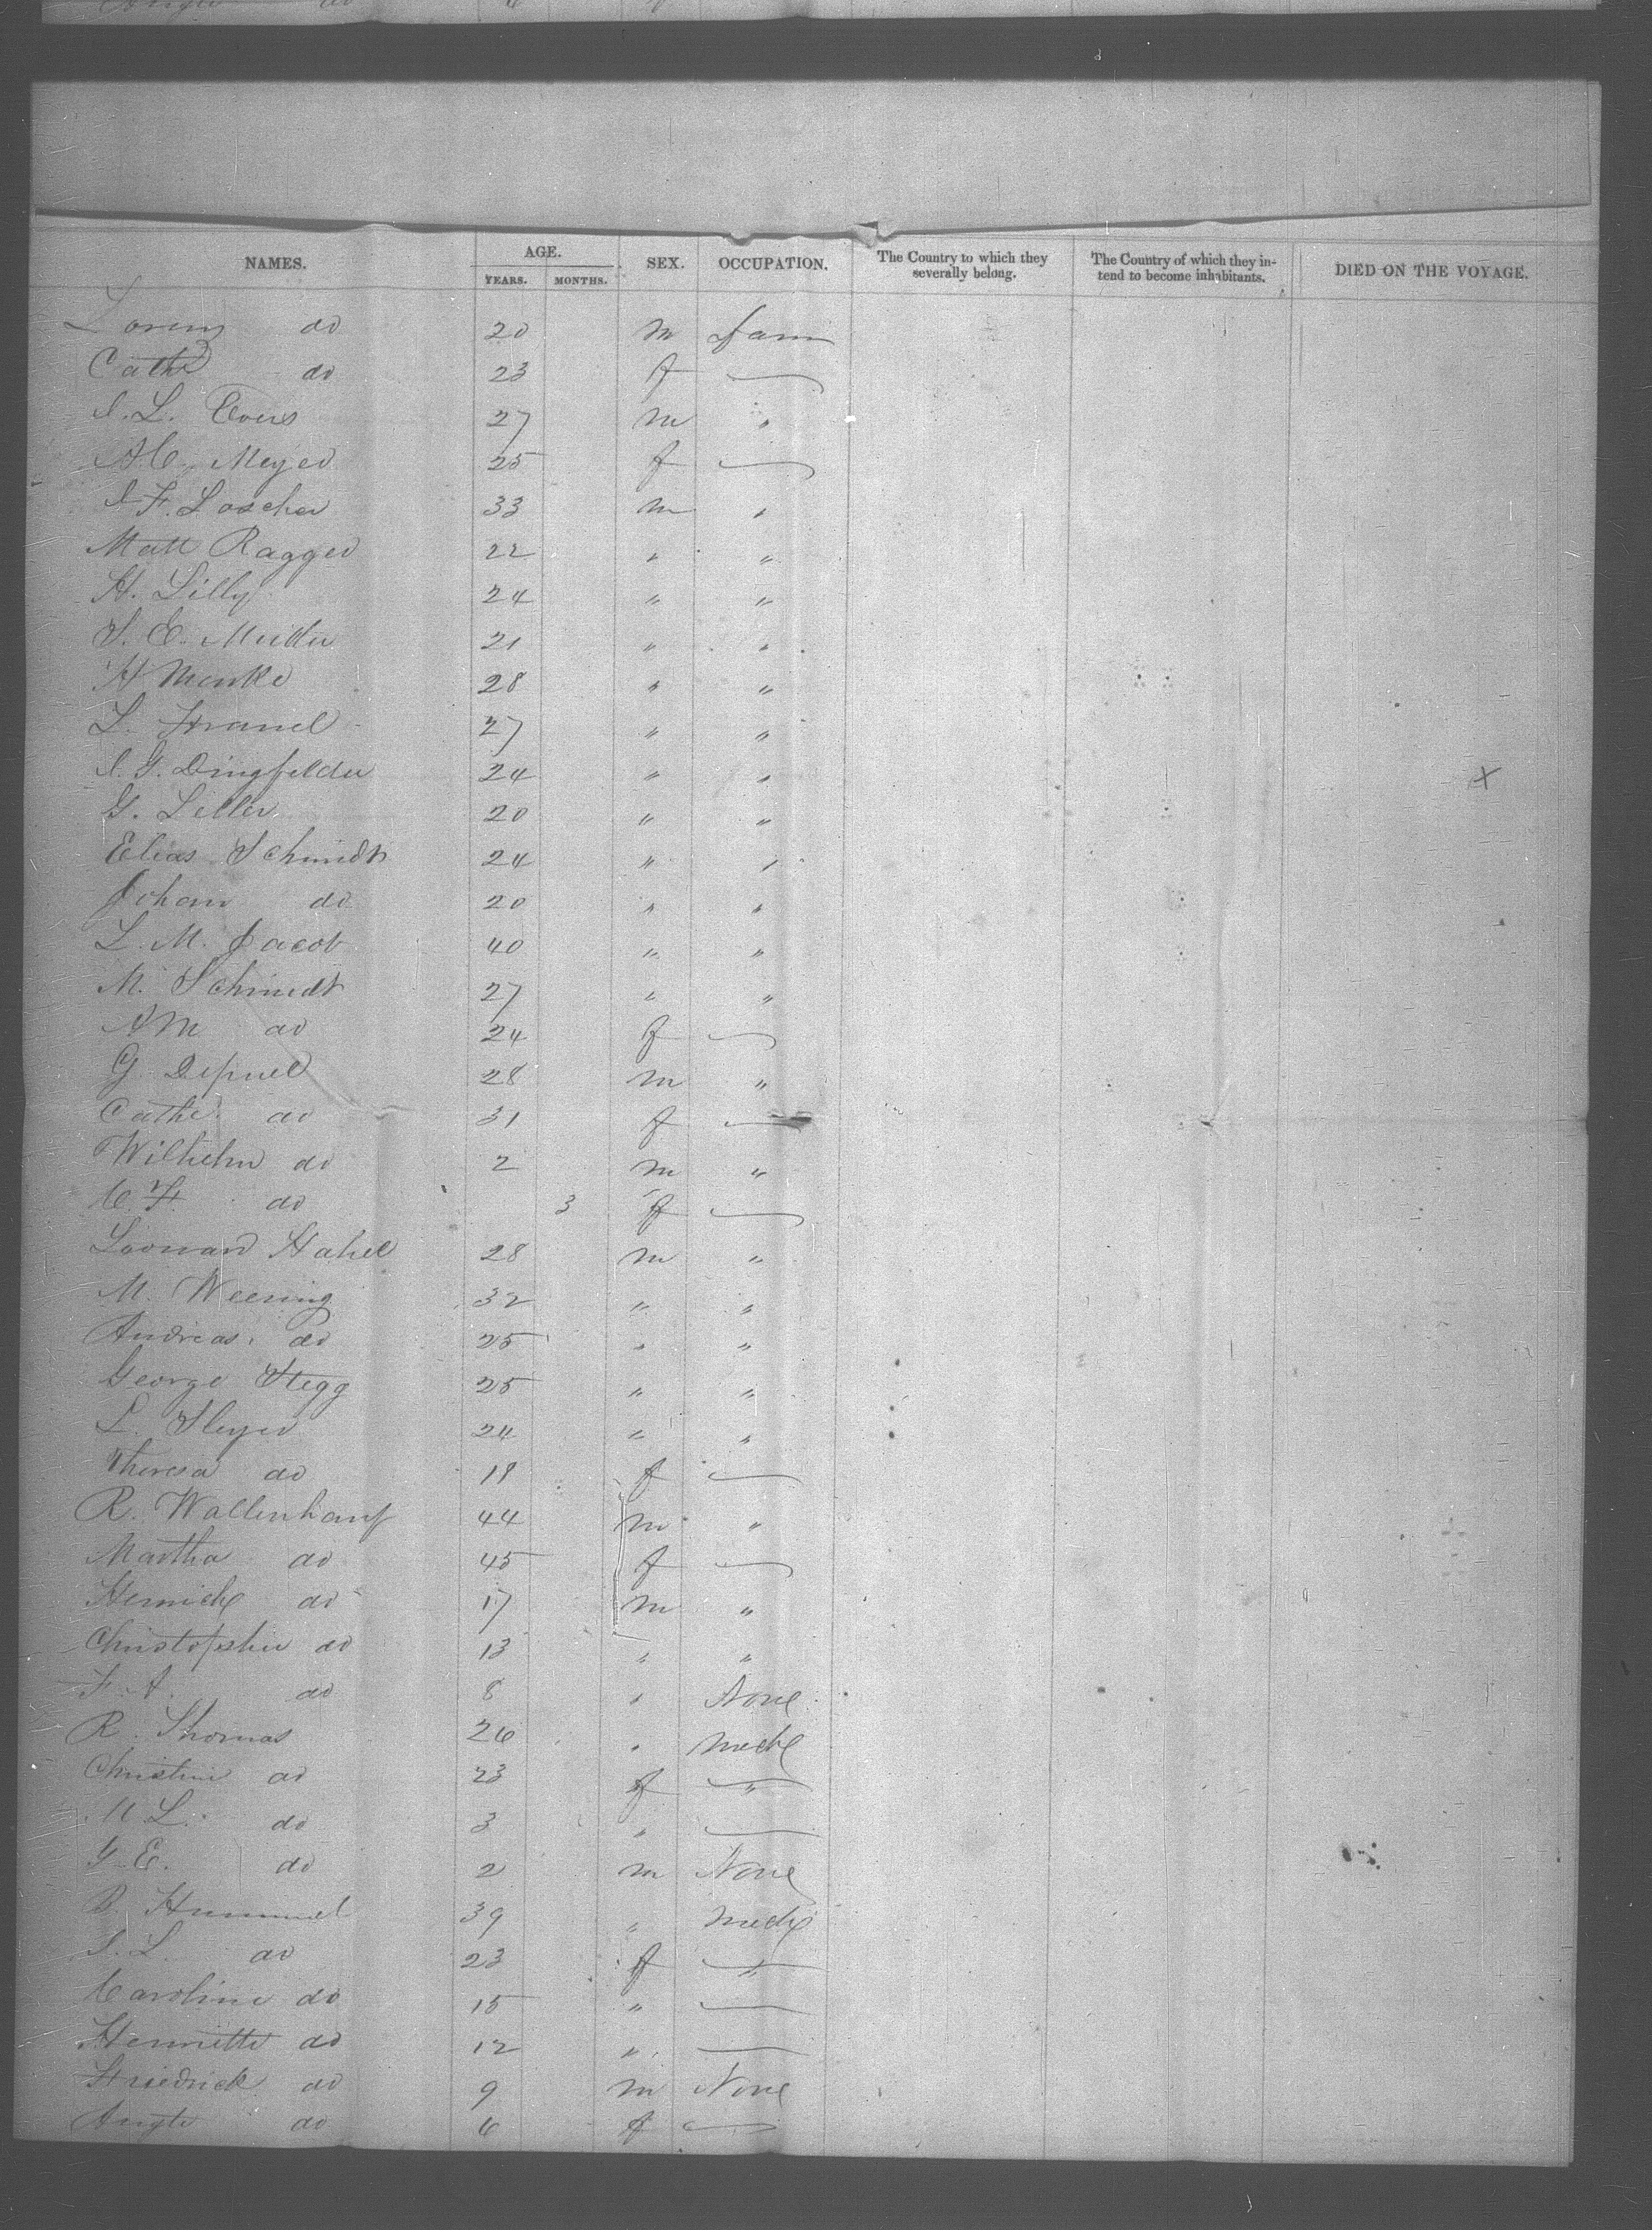 NAMES. AGE. YEARS. MONTHS. SEX. OCCUPATION. The Country to which they severally belong. The Country of which they intend to become inhabitants. DIED ON THE VOYAGE.
Lorenz do 20 m Farm
Cathe do 23 f
J. L. Evers 27 m "
A C. Meyer 25 f
J F. Loscher 33 m "
Matt Ragger 22 " "
H. Lilly 24 " "
S. E. 21 " "
H Menke 28 " "
L. 27 " "
J. G. Dingfelder 24 " " X
G. Leller 20 " "
Elias Schmidt 24 " "
Johann do 20 " "
L. M. Jacob 40 " "
M. Schmidt 27 " "
A M do 24 f
G. 28 m "
Cathe do 31 f
Wilhelm do 2 m "
C. F. do 3 f
Leonard Hahel 28 m "
M. Weening 32 " "
Andreas do 25 " "
George Stegg 25 " "
L. 24 " "
Theresa do 19 f
R. Wallenhauf 44 m "
Martha do 45 f
Henrich do 17 m "
Christopher do 13 " "
F. A. do 8 " None
R. Thomas 26 " mech
Christine do 23 f "
M L. do 3 "
G. E. do 2 m None
B. Hummel 39 " mech
S. L. do 23 f "
Caroline do 15 "
Henriette do 12 "
Friedrick do 9 m None
do 6 f